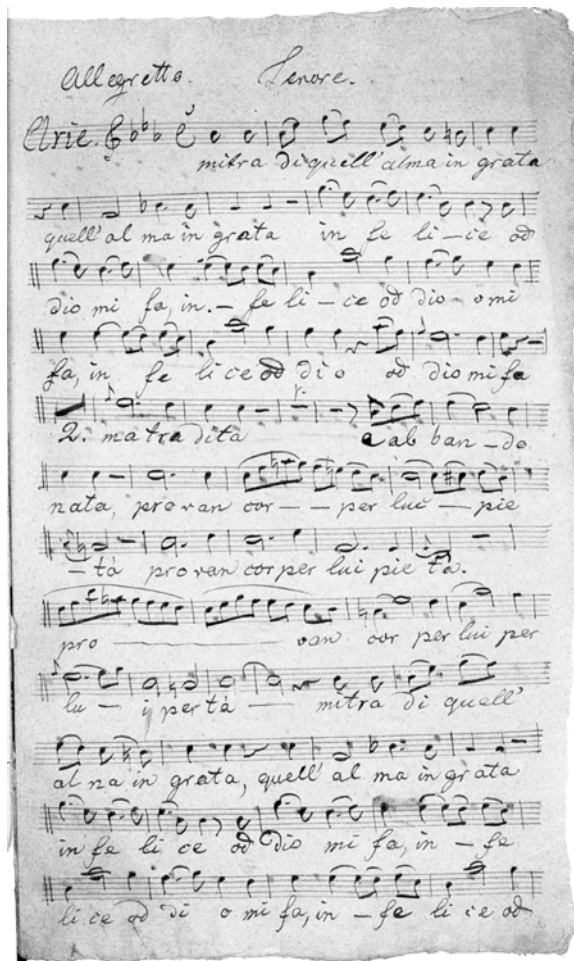 Allegretto. Tenore.
Arie.
mitra di quell' alma in grata
quell' al ma in grata in fe li-ce od
dio mi fa, in.- fe li-ce od dio-o mi
fa, in fe li ce od dio od dio mi fa
2. ma tradita e ab ban-do
nata, pro van cor--per lui-pie
-ta pro van cor per lui pie ta.
pro van cor per lui per
lu-i per ta- mitra di quell'
al na in grata, quell' al ma in grata
in fe li ce od dio mi fa, in-fe
li ce od di o mi fa, in-fe li ce od